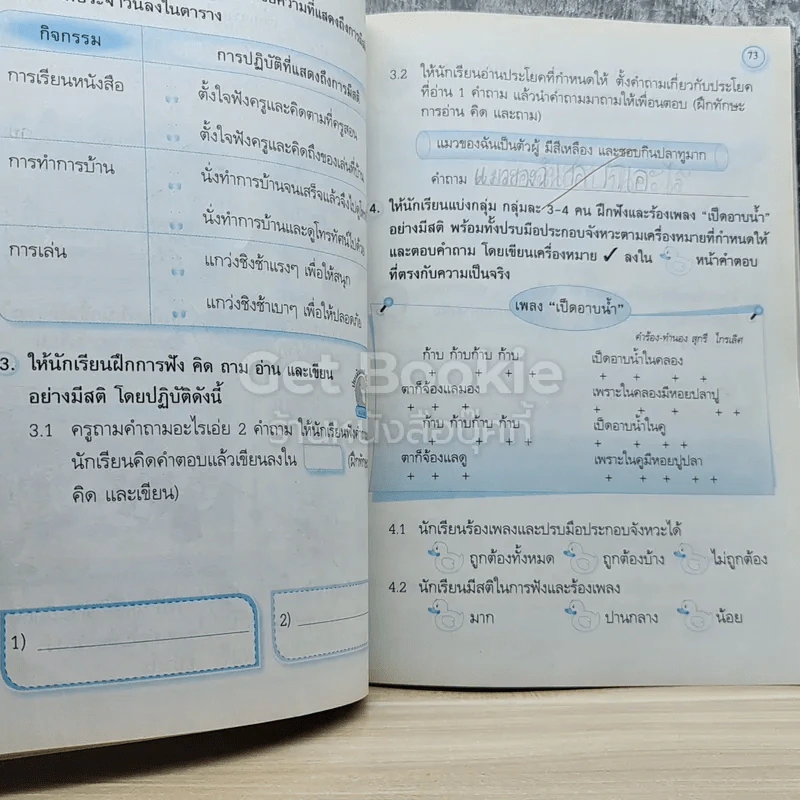 ลงในตาราง
กิจกรรม
การปฏิบัติที่แสดงถึงการมีสติ
การเรียนหนังสือ
ตั้งใจฟังครูและคิดตามที่ครูสอน
ตั้งใจฟังครูและคิดถึงของเล่นที่บ้าน
การทำการบ้าน
นั่งทำการบ้านจนเสร็จแล้วจึงไป
นั่งทำการบ้านและดูโทรทัศน์ไปด้วย
การเล่น
แกว่งชิงช้าแรงๆ เพื่อให้สนุก
แกว่งชิงช้าเบาๆ เพื่อให้ปลอดภัย
3. ให้นักเรียนฝึกการฟัง คิด ถาม อ่าน และเขียน
อย่างมีสติ โดยปฏิบัติดังนี้
3.1 ครูถามคำถามอะไรเอ่ย 2 คำถาม ให้นักเรียนฟัง
นักเรียนคิดคำตอบแล้วเขียนลงใน (ฝึกทักษะ
คิด และเขียน)
1)
2)
73
3.2 ให้นักเรียนอ่านประโยคที่กำหนดให้ ตั้งคำถามเกี่ยวกับประโยค
ที่อ่าน 1 คำถาม แล้วนำคำถามมาถามให้เพื่อนตอบ (ฝึกทักษะ
การอ่าน คิด และถาม)
แมวของฉันเป็นตัวผู้ มีสีเหลือง และชอบกินปลาทูมาก
คำถาม แมวของฉัน
4. ให้นักเรียนแบ่งกลุ่ม กลุ่มละ 3-4 คน ฝึกฟังและร้องเพลง "เป็ดอาบน้ำ"
อย่างมีสติ พร้อมทั้งปรบมือประกอบจังหวะตามเครื่องหมายที่กำหนดให้
และตอบคำถาม โดยเขียนเครื่องหมาย ✓ ลงใน หน้าคำตอบ
ที่ตรงกับความเป็นจริง
เพลง "เป็ดอาบน้ำ"
คำร้อง-ทำนอง สุกรี ไกรเลิศ
ก้าบ ก้าบก้าบ ก้าบ เป็ดอาบน้ำในคลอง
+ + + + + + + +
ตาก็จ้องแลมอง เพราะในคลองมีหอยปลาปู
+ + + + + + + +
ก้าบ ก้าบก้าบ ก้าบ เป็ดอาบน้ำในคู
+ + + + + + + +
ตาก็จ้องแลดู เพราะในคูมีหอยปูปลา
+ + + + + + + +
4.1 นักเรียนร้องเพลงและปรบมือประกอบจังหวะได้
ถูกต้องทั้งหมด ถูกต้องบ้าง ไม่ถูกต้อง
4.2 นักเรียนมีสติในการฟังและร้องเพลง
มาก ปานกลาง น้อย
Get Bookie
ร้านหนังสือบุ๊คกี้